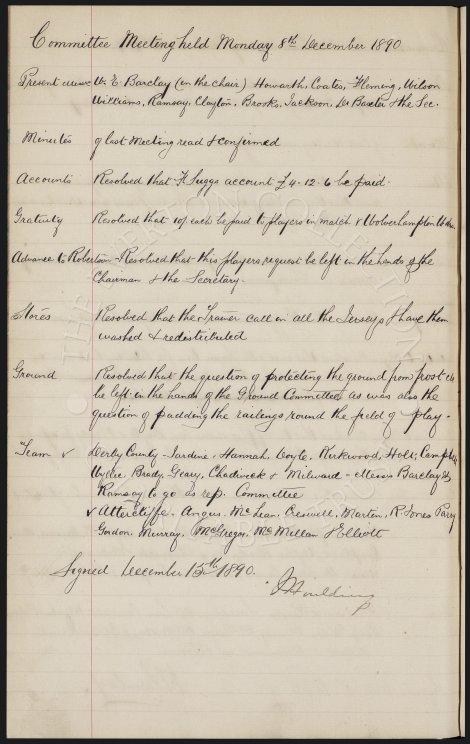 Committee Meeting held Monday 8th December 1890
Present were W. E. Barclay (in the chair) Howarth, Coates, Fleming, Wilson
Williams, Ramsay, Clayton, Brooks, Jackson, Dr Baxter & the Sec.
Minutes of last Meeting read & confirmed
Accounts Resolved that F. Suggs account £4-12-6 be paid.
Gratuity Resolved that 10/ each be paid to players in match v Wolverhampton
Advance to Robertson - Resolved that this players request be left in the hands of the
Chairman & the Secretary.
Stores Resolved that the Trainer call in all the Jerseys & have them
washed & redistributed
Ground Resolved that the question of protecting the ground from frost
be left in the hands of the Ground Committee as was also the
question of padding the railings round the field of play -
Team v Derby County - Jardine, Hannah, Doyle, Kirkwood, Holt, Campbell
Wylie, Brady, Geary, Chadwick & Milward - Messrs Barclay &
Ramsay to go as rep. Committee
v Attercliffe. Angus, McLean, Creswell, Martin, R. Jones Parry
Gordon, Murray, McGregor, McMillan & Elliott
Signed December 15th 1890.
J Houlding